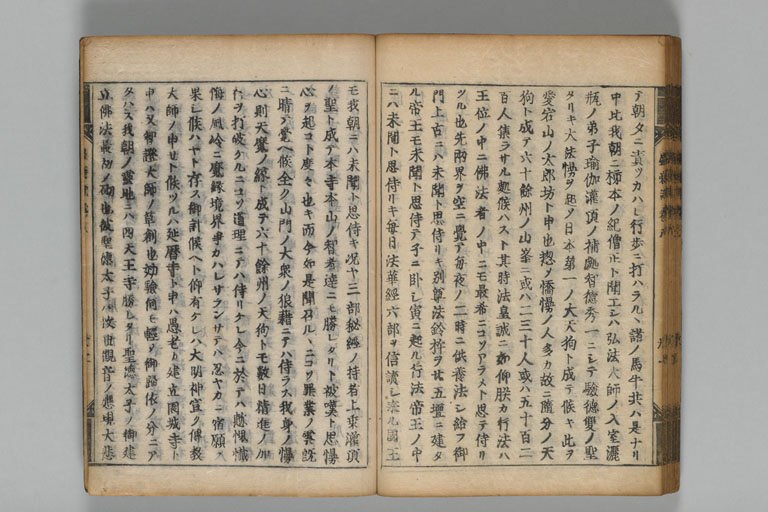 テ朝タニ責ツカハレ行歩ニ打ハラル、諸ノ馬牛共ハ是ナリ
中比我朝ニ柿本ノ紀僧正ト聞エシハ弘法大師ノ入室灑
瓶ノ弟子瑜伽灌頂ノ補處智德秀一ニシテ驗德雙ノ聖
タリキ大法慢ヲ起シ日本第一ノ大天狗ト成テ候キ此ヲ
愛宕山ノ太郎坊ト申也惣テ憍慢ノ人多カ故ニ隨分ノ天
狗ト成テ六十餘州ノ山峯ニ或ハ二三十人或ハ五十百二
百人集ラサル處候ハス其時法皇誠ニ如仰朕カ行法ハ
王位ノ中ニ佛法者ノ中ニモ最希ニコソアラスト思テ侍リ
ツル也先兩界ヲ空ニ覺テ毎夜ノ二時ニ供養法シ給フ御
門上古ニハ未聞ト思侍リキ別尊法鈴杵ヲ廿五壇ニ建タ
ル帝王モ未聞ト思侍テ子ニ臥シ寅ニ起ル行法帝王ノ中
ニハ未聞ト思侍リキ毎日法華經六部ヲ信讀シ奉ル國王
モ我朝ニハ未聞ト思侍キ况ヤ三部秘經ノ持者上乘灌頂
ノ聖ト成テ本寺本山ノ智者達ニモ勝レタリト被嘆ト思慢
心ヲ起コト度々也キ而今如是聞召ル、ニコソ罪業ノ雲既
ニ晴テ覺ヘ候全ク山門ノ大衆ノ狼藉ニテハ侍ラス我身ノ慢
心則天魔ノ緣ト成テ六十餘州ノ天狗トモ數日精進ノ加
行ヲ打破ケルニコソ道理ニテハ侍リケレ今ニ於テハ慙愧懺
悔ノ風冷ニ魔緣境界爭カハレサランサテハ忍ヤカニ宿願ヲ
果シ候ハヤト存ス御計候ヘト仰有ケレハ大明神宣ク傳教
大師ノ申セト候ツルハ延曆寺ト申ハ愚老カ建立園城寺ト
申ハ又智證大師ノ草創也効驗何モ輕シ御歸依ノ分ニア
タハス我朝ノ靈地ニハ四天王寺勝レタリ聖德太子ノ御建
立佛法最初ノ砌也彼聖德太子ハ救世觀音ノ應現大悲